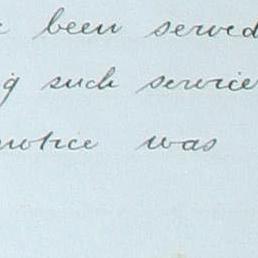 been served
such service
notice was